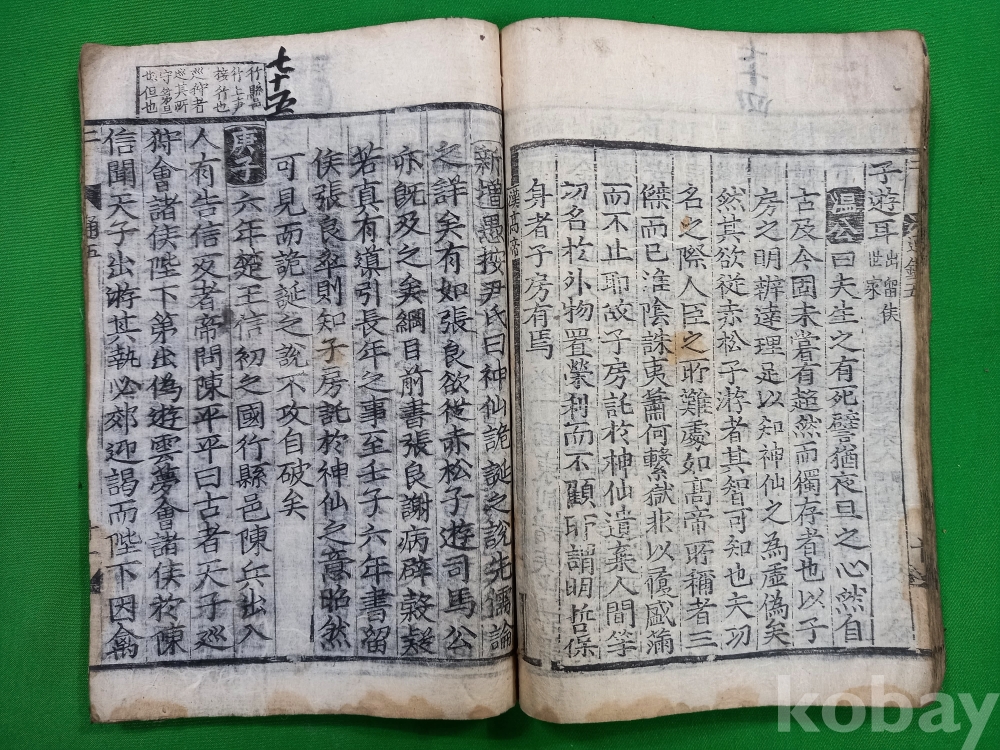 七十四
子遊耳 出留侯
世家
温公曰夫生之有死譬猶夜旦之必然自
古及今固未嘗有超然而獨存者也以子
房之明辦達理足以知神仙之為虛偽矣
然其欲從赤松子游者其智可知也夫功
名之際人臣之所難處如高帝所稱者三
傑而已淮陰誅夷蕭何繫獄非以履盛滿
而不止耶故子房託於神仙遺棄人間等
功名於外物置榮利而不顧所謂明哲保
身者子房有焉
漢高帝
七十五
新增愚按尹氏曰神仙詭誕之說先儒論
之詳矣有如張良欲從赤松子遊司馬公
亦既及之矣綱目前書張良謝病辟穀疑
若真有導引長年之事至壬子六年書留
侯張良卒則知子房託於神仙之意昭然
可見而詭誕之說不攻自破矣
行縣
行上声
按行也
巡狩者
巡其所
守
也但也
庚子六年楚王信初之國行縣邑陳兵出入
人有告信反者帝問陳平平曰古者天子巡
狩會諸侯陛下第出偽遊雲夢會諸侯於陳
信聞天子出游其執必郊迎謁而陛下因禽
通五
kobay